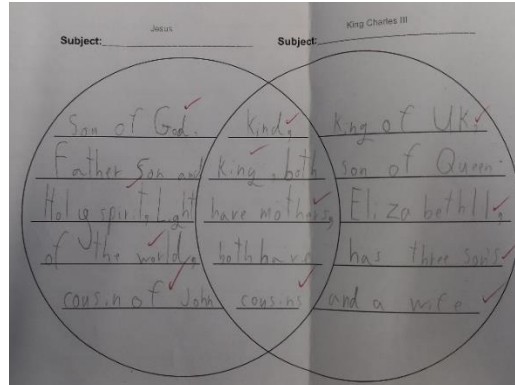 Jesus
King Charles III
Subject:
Subject:
Son of God.
Father Son and
Holy spirit, Light
of the world,
cousin of John
kind,
king, both
have mothers,
both have
cousins
king of UK,
son of Queen
Elizabeth II,
has three sons
and a wife